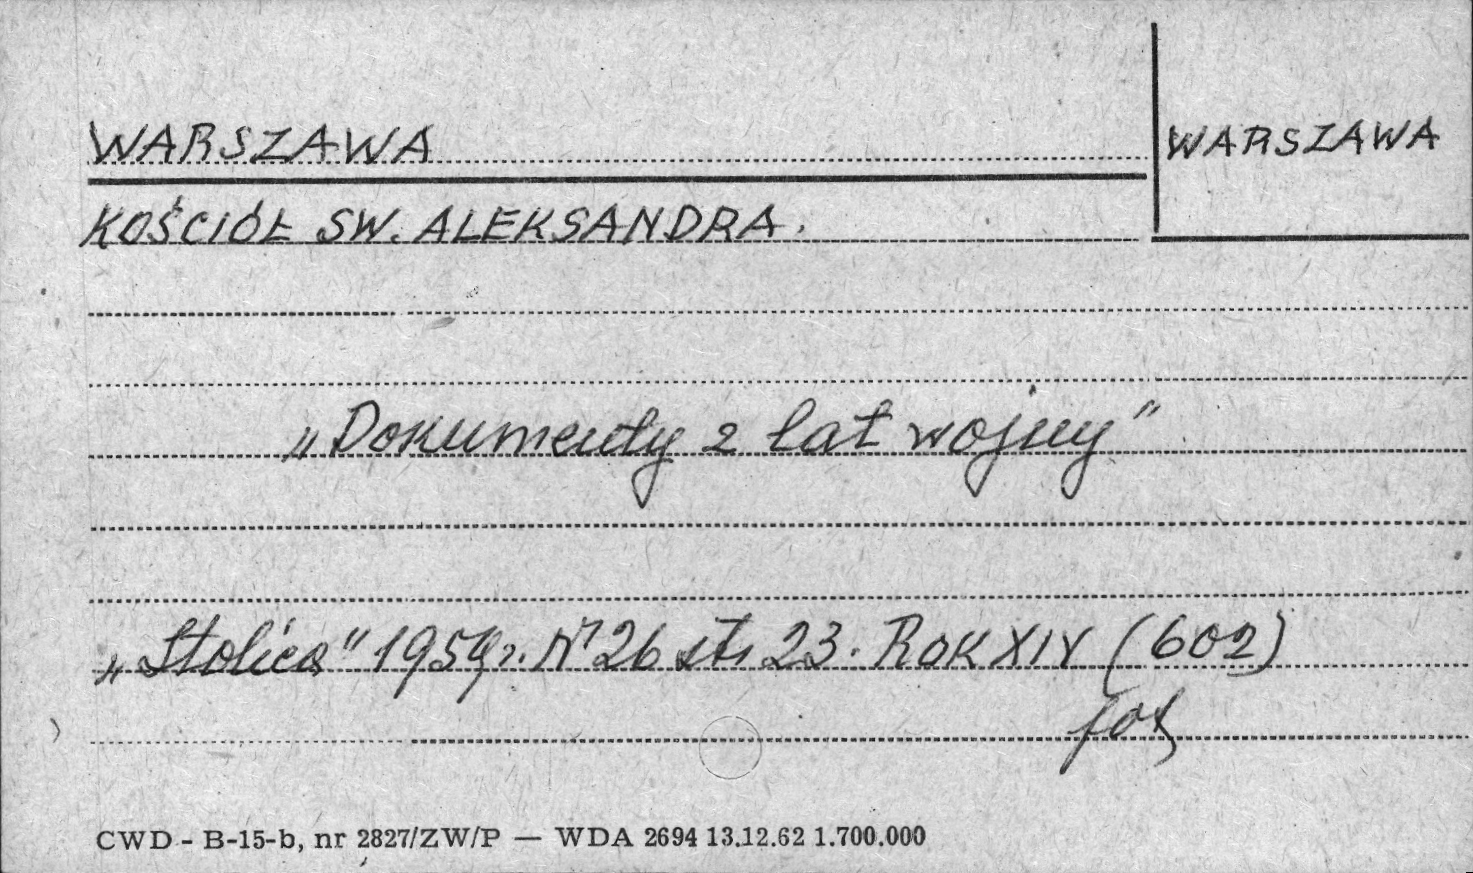 WARSZAWA
WARSZAWA
KOŚCIÓŁ SW. ALEKSANDRA.
„Dokumenty z lat wojny”
„Stolica” 1959r. Nr 26 str. 23. Rok XIV (602)
fot
CWD - B-15-b, nr 2827/ZW/P — WDA 2694 13.12.62 1.700.000